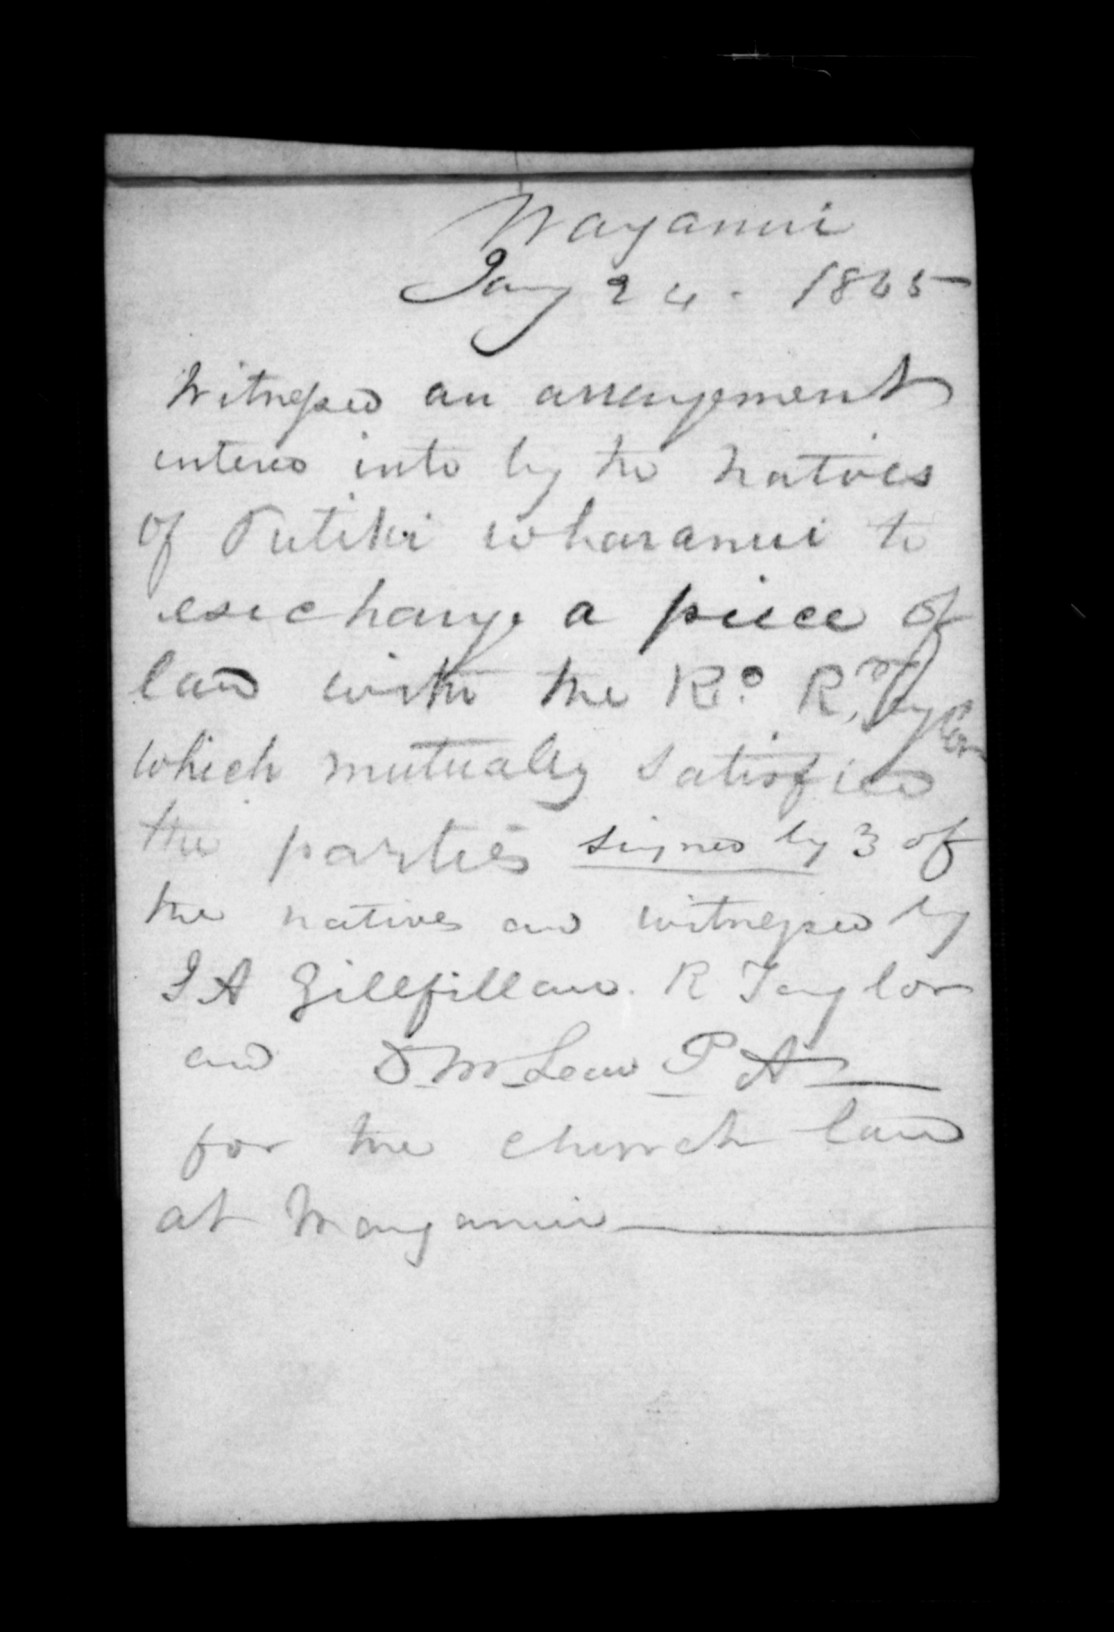 Wanganui
Jany 24 - 1845
Witnessed an arrangement
entered into by the natives
of Putiki wharanui to
exchange a piece of
land with the Rd. R. Taylor
which mutually satisfied
the parties signed by 3 of
the natives and witnessed by
J A Gillfillan. R Taylor
and D. McLean P A
for the church land
at Wanganui